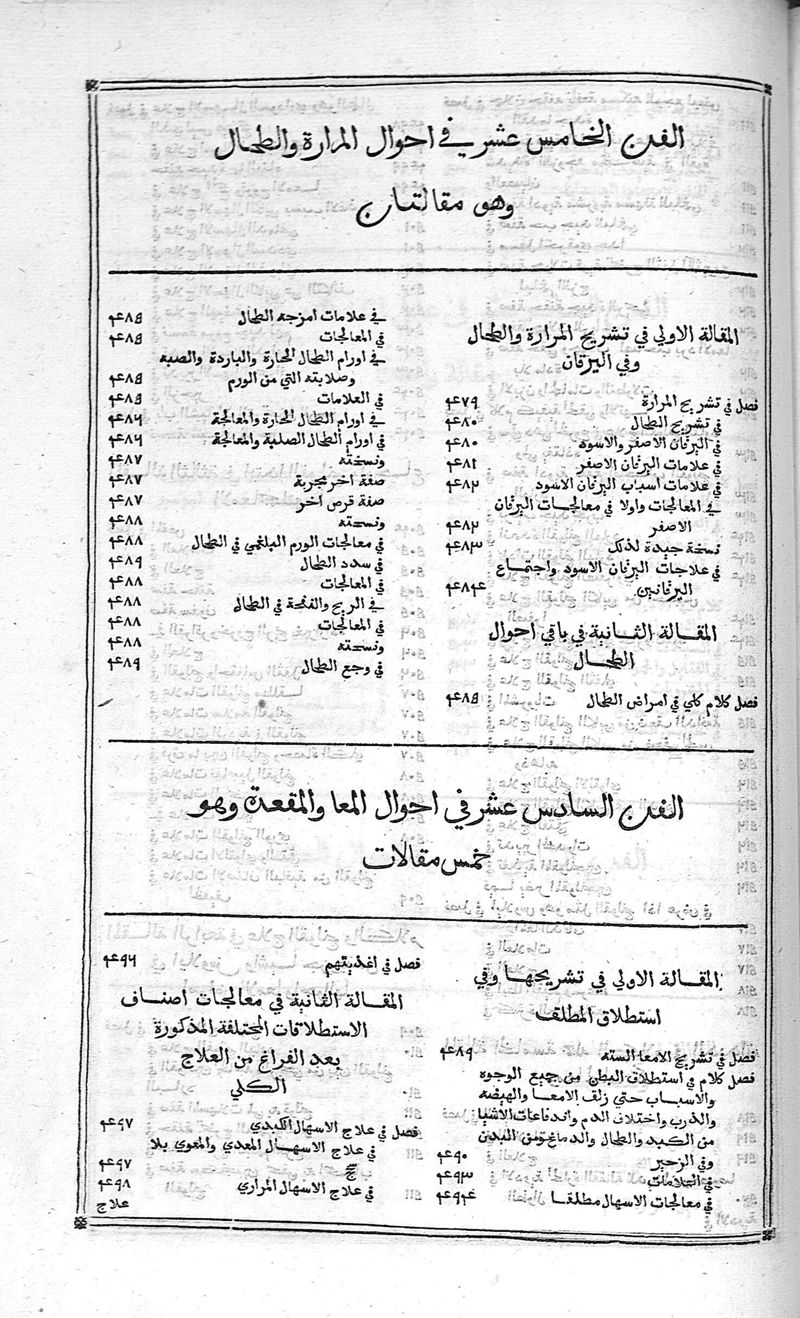 الفن الخامس عشر في احوال المرارة والطحال
وهو مقالتان
المقالة الاولي في تشريح المرارة والطحال
وفي اليرقان
فصل في تشريح المرارة ۴۷۹
في تشريح الطحال ۴۸۰
في اليرقان الاصفر والاسود ۴۸۰
في علامات اليرقان الاصفر ۴۸۱
في علامات اسباب اليرقان الاسود ۴۸۲
في المعالجات واولا في معالجات اليرقان
الاصفر ۴۸۲
نسخة جيدة لذلك ۴۸۳
في علاجات اليرقان الاسود واجتماع
اليرقانين ۴۸۴
المقالة الثانية في باقي احوال
الطحال
فصل كلام كلي في امراض الطحال ۴۸۵
في علامات امزجه الطحال ۴۸۵
في المعالجات ۴۸۵
في اورام الطحال الحارة والباردة والصبه
وصلابته التي من الورم ۴۸۵
في العلامات ۴۸۵
في اورام الطحال الحارة والمعالجة ۴۸۶
في اورام الطحال الصلبة والمعالجة ۴۸۶
ونسخته ۴۸۷
صفة اخر مجربة ۴۸۷
صفة قرص اخر ۴۸۷
ونسخته ۴۸۸
في معالجات الورم البلغمي في الطحال ۴۸۸
في سدد الطحال ۴۸۹
في المعالجات ۴۸۸
في الريح والنفخة في الطحال ۴۸۸
في المعالجات ۴۸۸
ونسخته ۴۸۸
في وجع الطحال ۴۸۹
الفن السادس عشر في احوال المعا والمقعدة وهو
خمس مقالات
المقالة الاولي في تشريحها وفي
استطلاق المطلف
فصل في تشريح الامعا السته ۴۸۹
فصل كلام في استطلاق البطن من جميع الوجوه
والاسباب حتي زلف الامعا والهيضه
والذرب واختلاف الدم واندفاعات الاشيا
من الكبد والطحال والدماغ ومن البدن
وفي الزحير ۴۹۰
في العلامات ۴۹۳
في معالجات الاسهال مطلقا ۴۹۴
فصل في اغذيتهم ۴۹۶
المقالة الثانية في معالجات اصناف
الاستطلاقات المختلفة المذكورة
بعد الفراغ من العلاج
الكلي
فصل في علاج الاسهال الكبدي ۴۹۷
في علاج الاسهال المعدي والمعوي بلا
سحج ۴۹۷
في علاج الاسهال المراري ۴۹۸
علاج